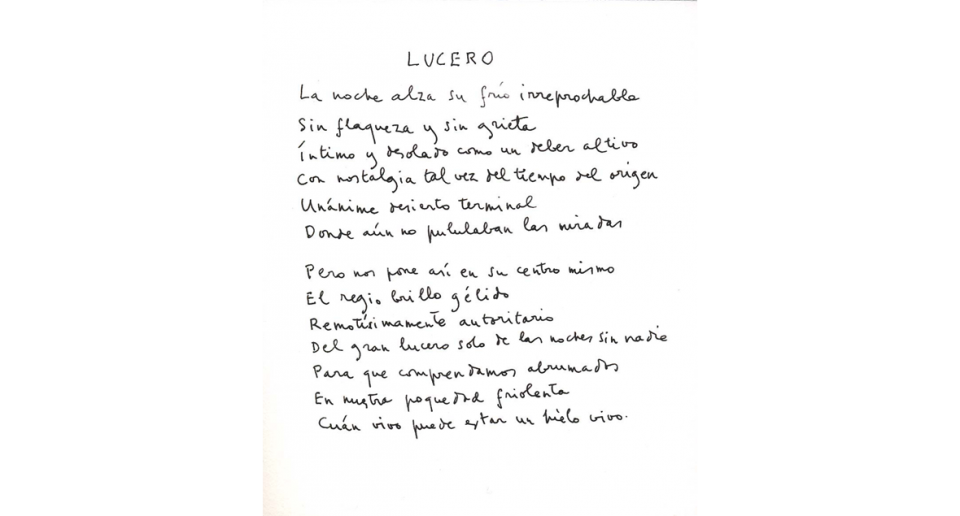 LUCERO
La noche alza su frío irreprochable
Sin flaqueza y sin grieta
Íntimo y desolado como un deber altivo
Con nostalgia tal vez del tiempo del origen
Unánime desierto terminal
Donde aún no pululaban las miradas
Pero nos pone así en su centro mismo
El regio brillo gélido
Remotísimamente autoritario
Del gran lucero solo de las noches sin nadie
Para que comprendamos abrumados
En nuestra poquedad friolenta
Cuán vivo puede estar un hielo vivo.